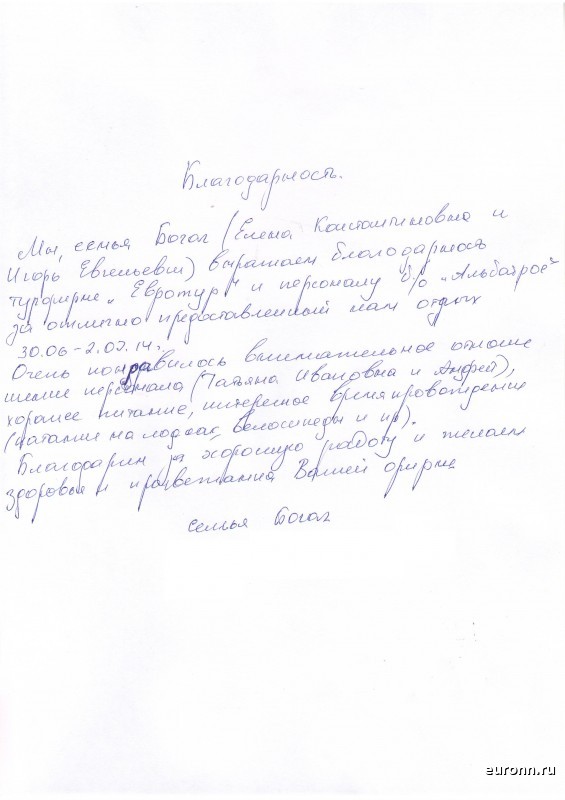 Благодарность.
Мы, семья Богал (Елена Константиновна и
Игорь Евгеньевич) выражаем благодарность
турфирме „Евротур" и персоналу б/о „Альбатрос"
за отлично предоставленный нам отдых
30.06-2.07.14г.
Очень понравилось внимательное отноше
шение персонала (Татьяна Ивановна и Андрей),
хорошее питание, интересное времяпровождение
(катание на лодках, велосипеды и пр).
Благодарим за хорошую работу и желаем
здоровья и процветания Вашей фирме
семья Богал
euronn.ru